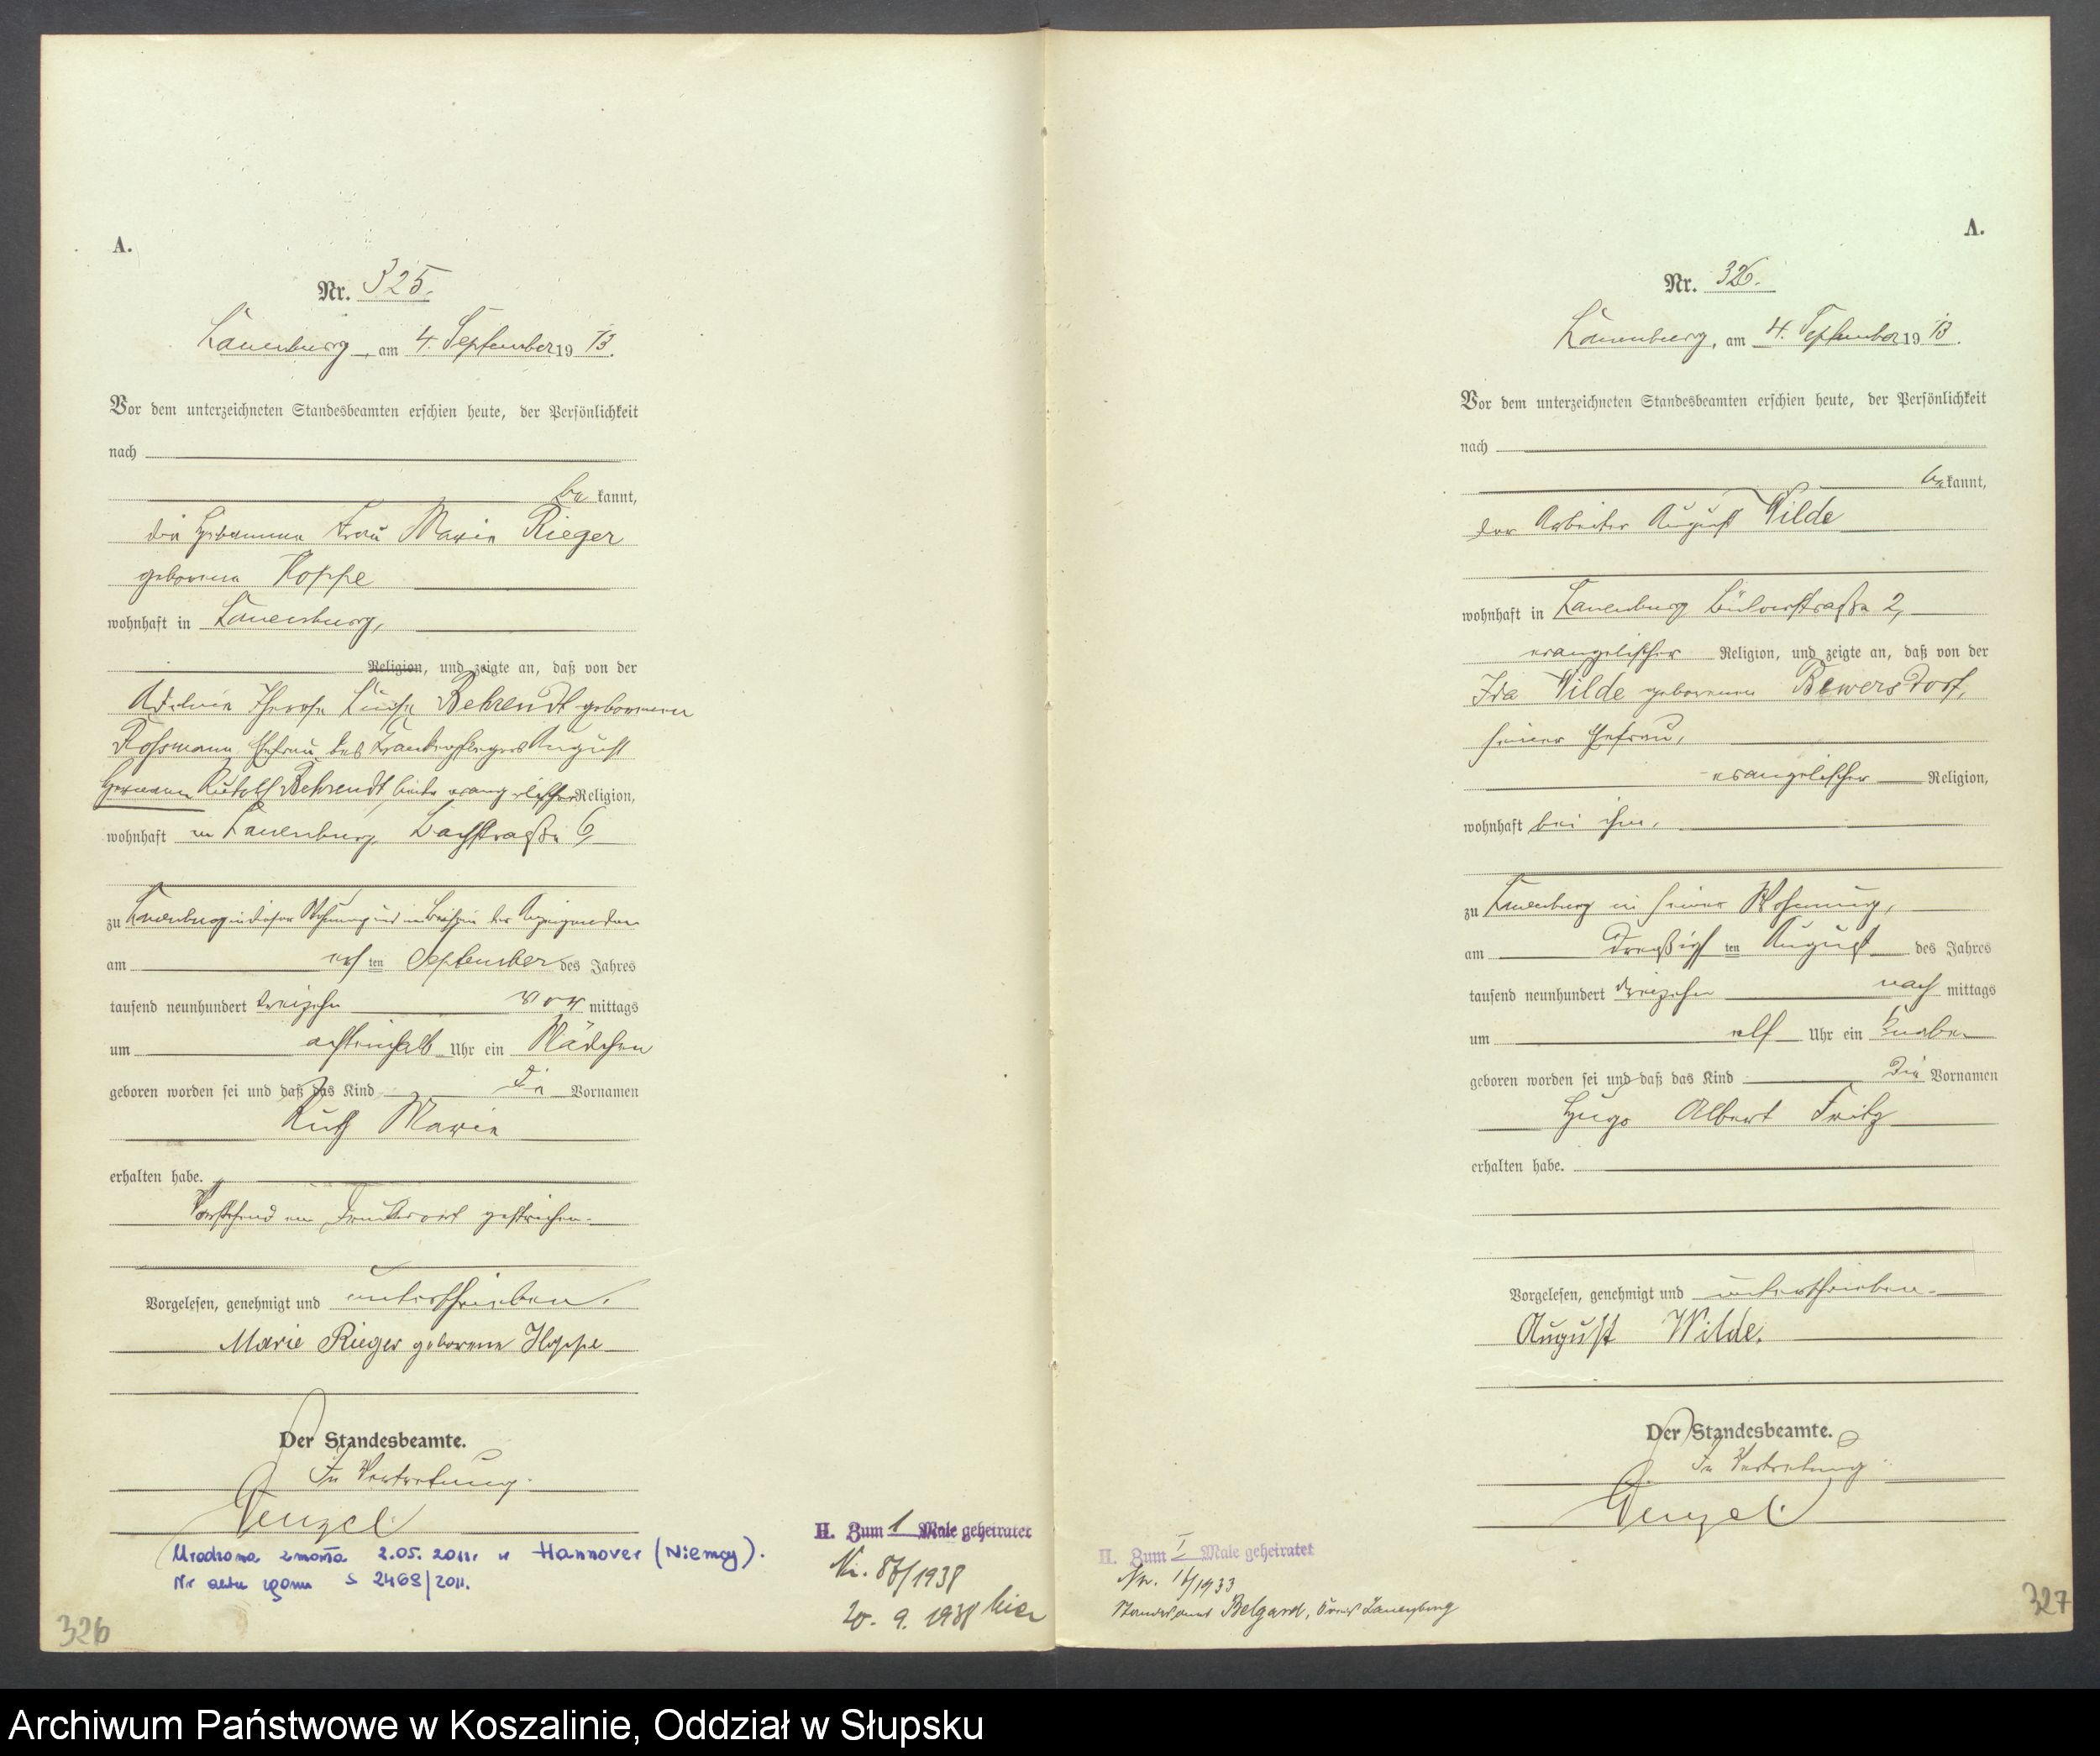 A.
Nr. 325.
Lauenburg, am 4. September 1913.
Vor dem unterzeichneten Standesbeamten erschien heute, der Persönlichkeit
nach
be kannt,
die Hebamme Frau Marie Rieger
geborene Hoppe
wohnhaft in Lauenburg,
Religion, und zeigte an, daß von der
Therese Behrendt geborenen
Roßmann Ehefrau des Krankenpflegers August
Hermann Rudolf Behrendt beide evangelischer Religion,
wohnhaft in Lauenburg, Bachstraße 6,
zu Lauenburg in dieser Wohnung und im Beisein der Anzeigenden
am ersten September des Jahres
tausend neunhundert dreizehn vor mittags
um achteinhalb Uhr ein Mädchen
geboren worden sei und daß das Kind die Vornamen
Ruth Marie
erhalten habe.
Vorstehend ein Druckwort gestrichen.
Vorgelesen, genehmigt und unterschrieben.
Marie Rieger geborene Hoppe
Der Standesbeamte.
In Vertretung.
Wenzel.
Urodzona zmarła 2.05.2011r w Hannover (Niemcy).
Nr aktu zgonu S 2469/2011.
II. Zum 1 Male geheiratet
Nr. 87/1938
20. 9. 1938 hier
326
A.
Nr. 326.
Lauenburg, am 4. September 1913.
Vor dem unterzeichneten Standesbeamten erschien heute, der Persönlichkeit
nach
be kannt,
der Arbeiter August Wilde
wohnhaft in Lauenburg Bülowstraße 2,
evangelischer Religion, und zeigte an, daß von der
Ida Wilde geborenen Bewersdorf,
seiner Ehefrau,
evangelischer Religion,
wohnhaft bei ihm,
zu Lauenburg in seiner Wohnung,
am dreißigsten August des Jahres
tausend neunhundert dreizehn nach mittags
um elf Uhr ein Knabe
geboren worden sei und daß das Kind die Vornamen
Hugo Albert Fritz
erhalten habe.
Vorgelesen, genehmigt und unterschrieben.
August Wilde.
Der Standesbeamte.
In Vertretung.
Wenzel.
II. Zum I Male geheiratet
Nr. /1933
Standesamt Belgard, Kreis Lauenburg
327
Archiwum Państwowe w Koszalinie, Oddział w Słupsku